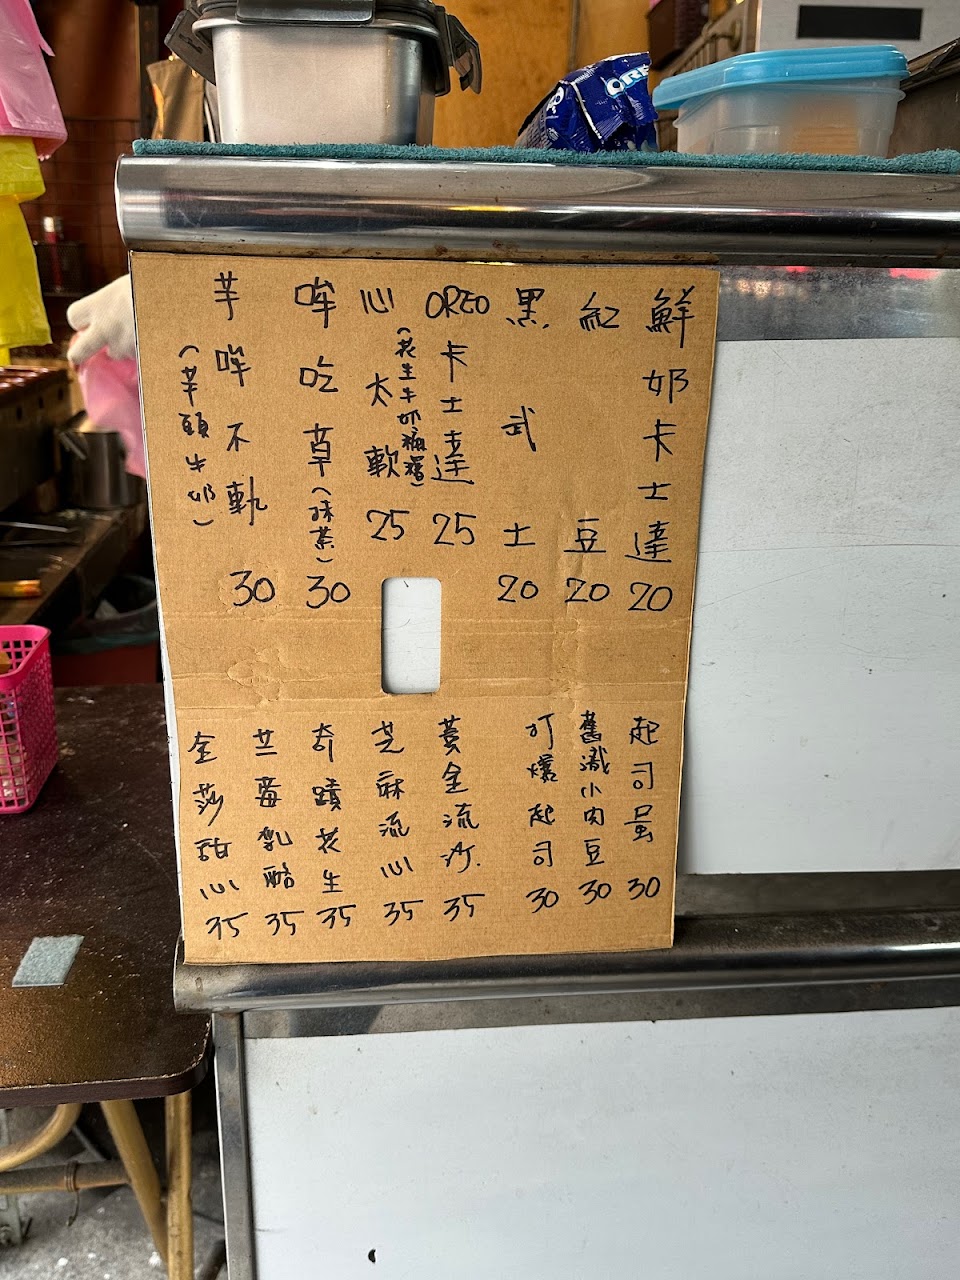 OREO
鮮奶卡士達 20
紅豆 20
黑武士 20
OREO卡士達 25
心太軟 25
(花生牛奶麻糬)
哞吃草(抹茶) 30
芋哞不軌 30
(芋頭牛奶)
起司蛋 30
舊識小肉豆 30
打爆起司 30
黃金流沙 35
芝麻流心 35
奇蹟花生 35
兰莓乳酪 35
金莎甜心 35